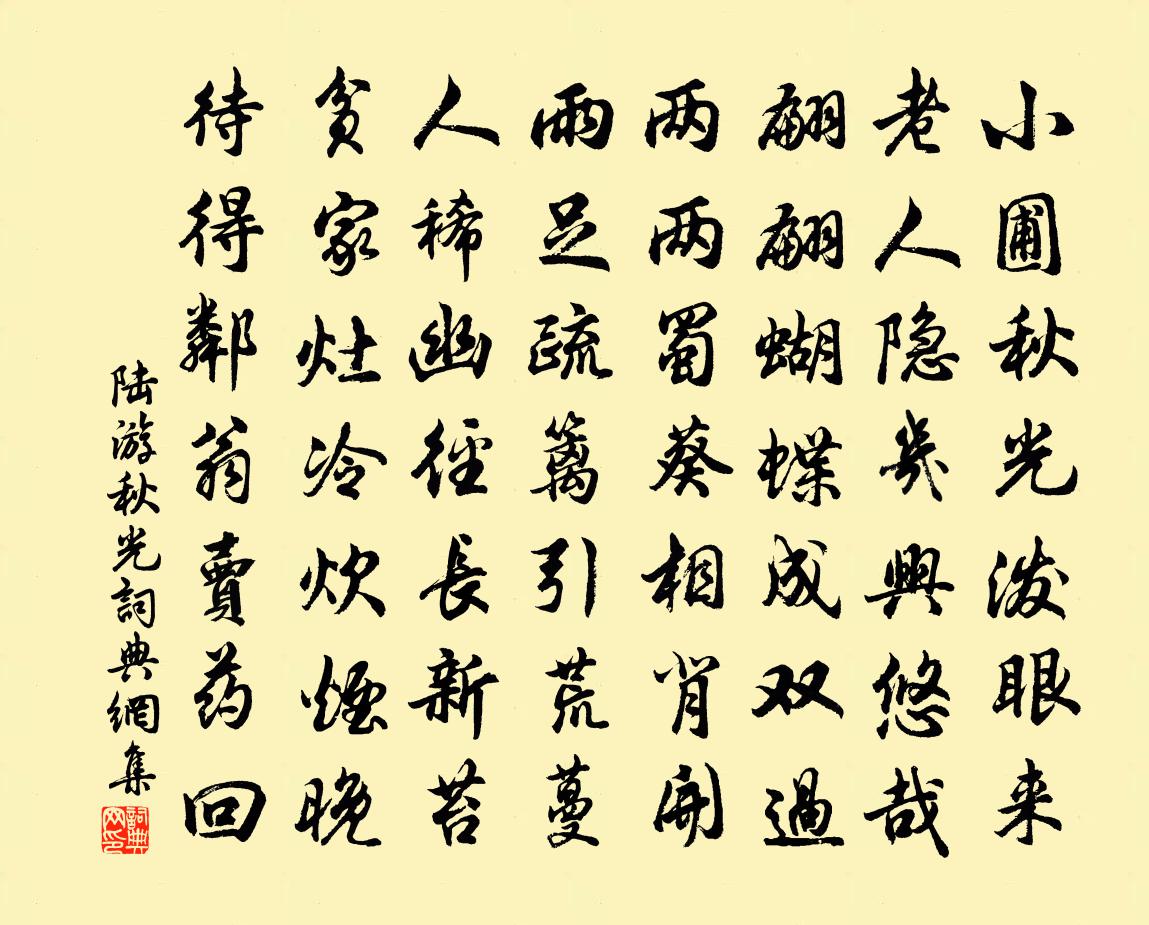 小圃秋光泼眼来
老人隐幾興悠哉
翩翩蝴蝶成双過
两两蜀葵相背開
雨足疏篱引荒蔓
人稀幽徑長新苔
貧家灶冷炊煙晚
待得鄰翁賣药回
陆游秋光詞典網集
詞典网印